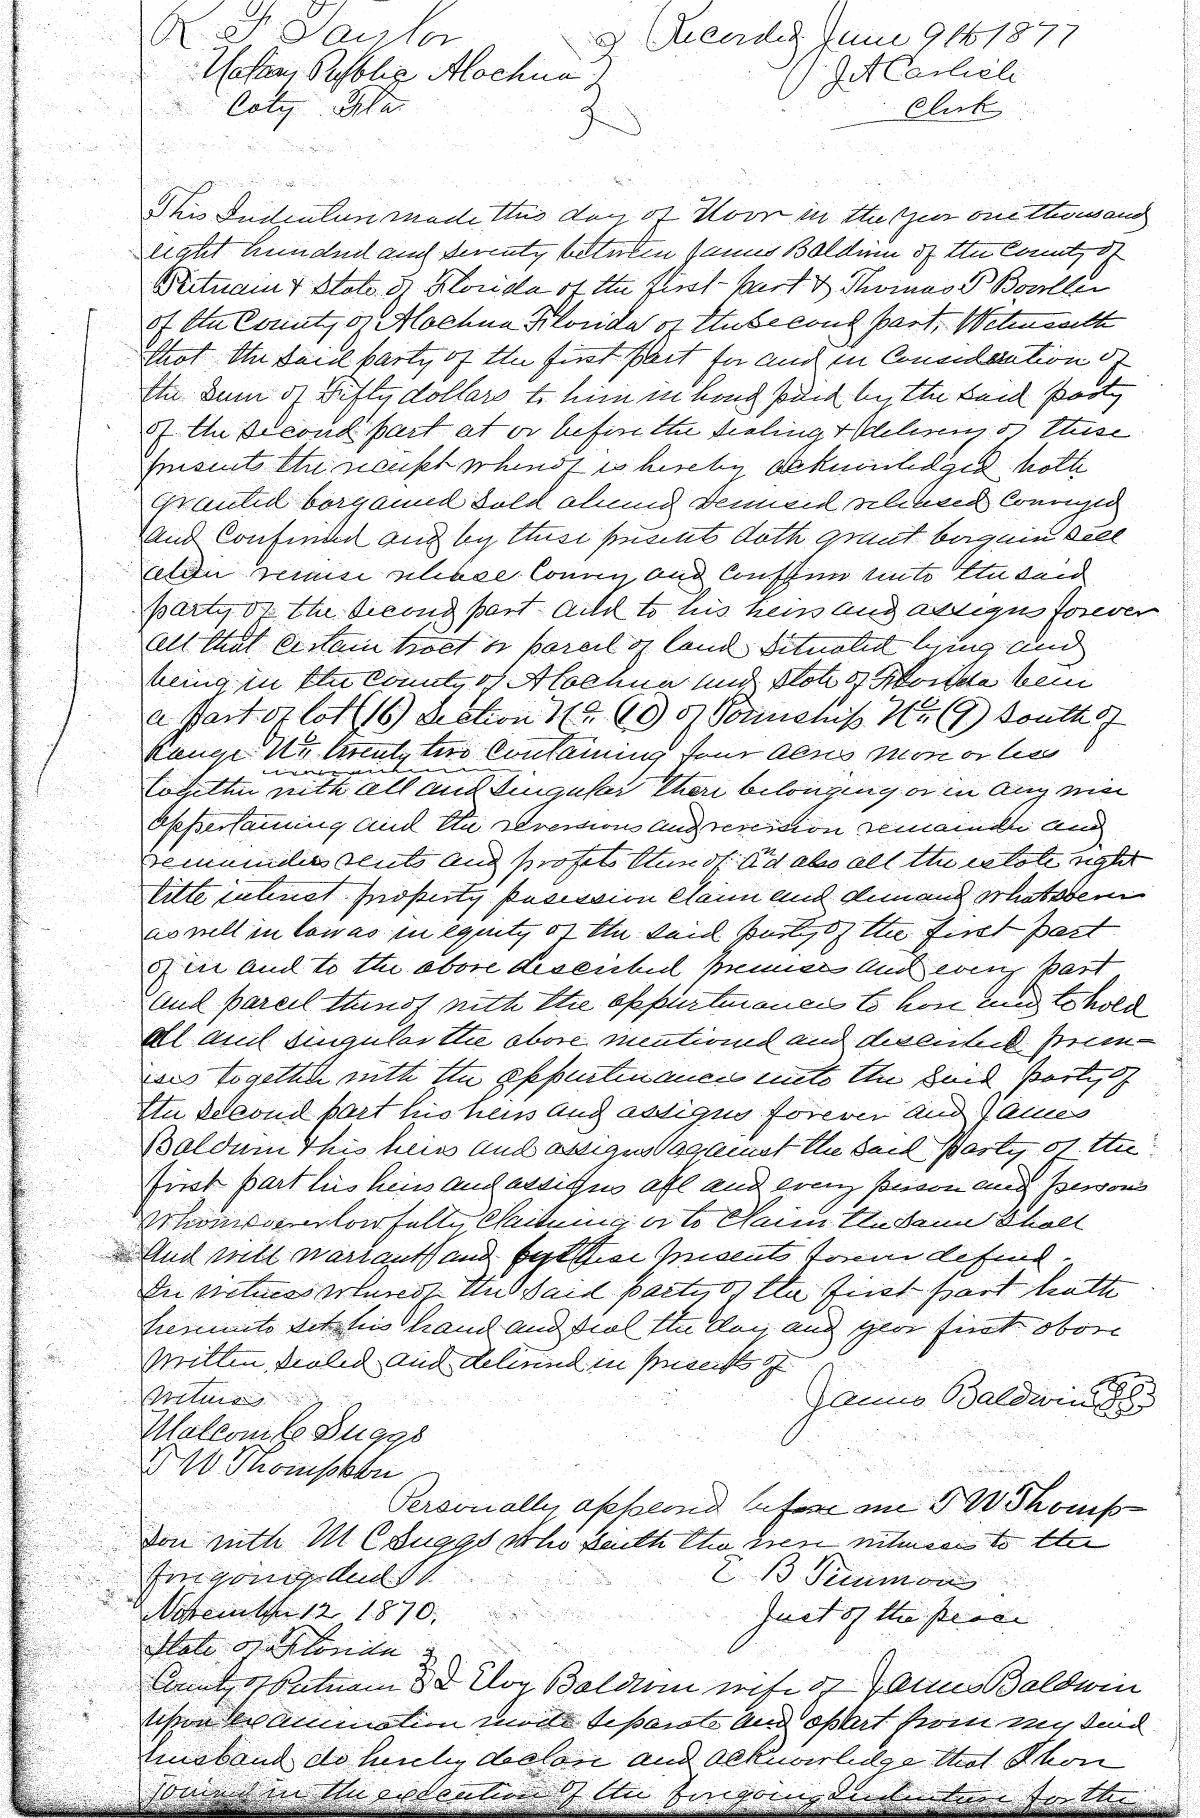 R F Taylor
Recorded June 9th 1877
Notary Public Alachua
J A Carlisle
Coty Fla
Clerk
This Indenture made this day of Novr in the year one thousand
eight hundred and seventy between James Baldwin of the County of
Putnam & State of Florida of the first part & Thomas P
of the County of Alachua Florida of the second part, Witnesseth
that the said party of the first part for and in Consideration of
the Sum of Fifty dollars to him in hand paid by the said party
of the second part at or before the sealing & delivery of these
presents the receipt whereof is hereby acknowledged hath
granted bargained sold aliened remised released Conveyed
and Confirmed and by these presents doth grant bargain sell
alien remise release Convey and Confirm unto the said
party of the second part and to his heirs and assigns forever
all that certain tract or parcel of land situated lying and
being in the County of Alachua and State of Florida bein
a part of lot (16) Section No. (10) of Township No. (9) South of
Range No. twenty two Containing four acres more or less
together with all and Singular there belonging or in any wise
appertaining and the reversions and reversion remainder and
remainders rents and profits thereof a'd also all the estate right
title interest property posession claim and demand whatsoever
as well in law as in equity of the said party of the first part
of in and to the above described premises and every part
and parcel thereof with the appurtenances to have and to hold
all and singular the above mentioned and described prem=
ises together with the appurtenances unto the said party of
the second part his heirs and assigns forever and James
Baldwin & his heirs and assigns against the said party of the
first part his heirs and assigns all and every person and persons
whomsoever lawfully claiming or to claim the same shall
and will warrant and by these presents forever defend.
In witness whereof the said party of the first part hath
hereunto set his hand and seal the day and year first above
written. sealed and delivered in presents of
witness
James Baldwin
Malcomb Suggs
T W Thompson
Personally appeard before me T W Thomp=
son with M C Suggs who saith the were witnesses to the
foregoing deed
E B Timmons
November 12 1870.
Just of the peace
State of Florida
County of Putnam I Baldwin wife of James Baldwin
upon examination made separate and apart from my said
husband do hereby declare and acknowledge that I have
joined in the execution of the foregoing Indenture for the